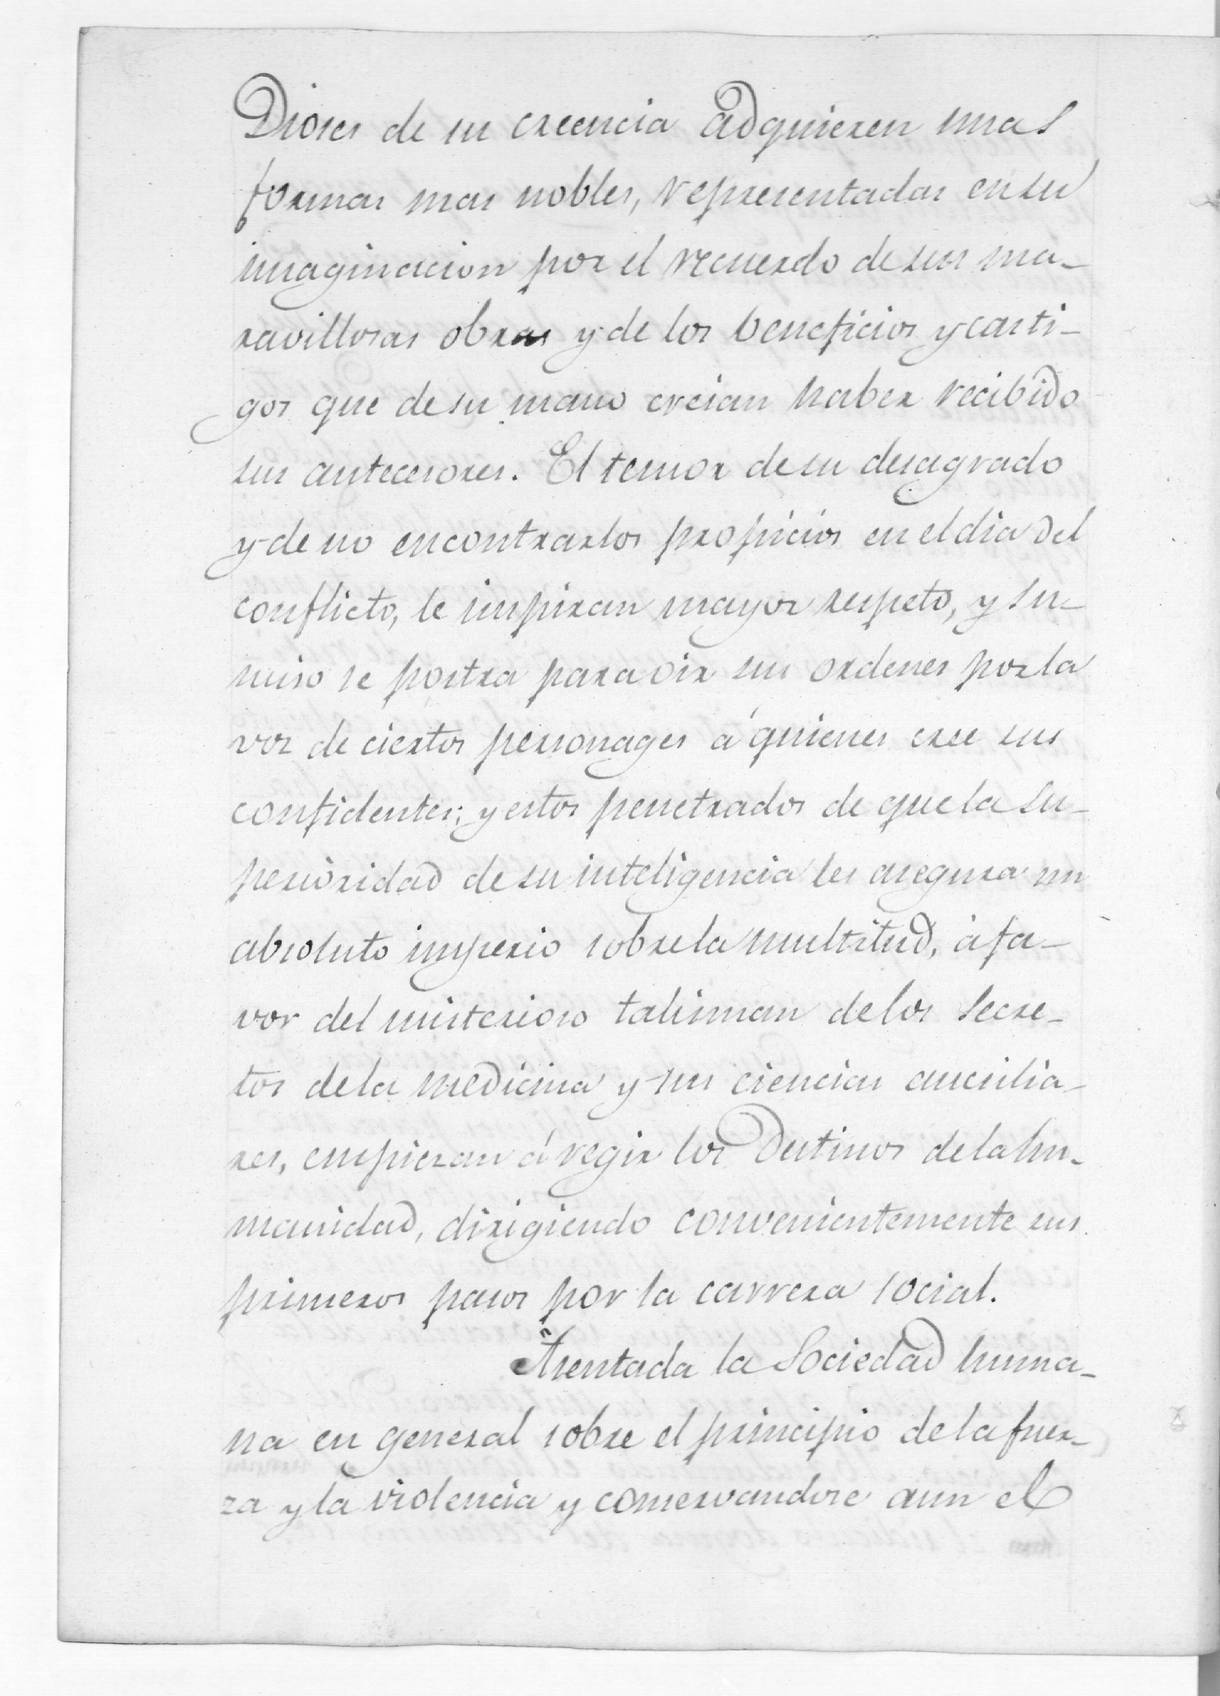 Dioses de su creencia adquieren unas
formas mas nobles, representadas en su
imaginacion por el recuerdo de sus ma-
ravillosas obras y de los beneficios y casti-
gos que de su mano creian haber recibido
sus antecesores. El temor de su desagrado
y de no encontrarlos propicios en el dia del
conflicto, le inspiran mayor respeto, y su-
miso se postra para oir sus ordenes por la
voz de ciertos personages á quienes cree sus
confidentes; y estos penetrados de que la su-
perioridad de su inteligencia les asegura un
absoluto imperio sobre la multitud, á fa-
vor del misterioso talisman de los secre-
tos de la medicina y sus ciencias aucsilia-
res, empiezan á regir los destinos de la hu-
manidad, dirigiendo convenientemente sus
primeros pasos por la carrera social.
Asentada la Sociedad huma-
na en general sobre el principio de la fuer-
za y la violencia y conservandose aun el